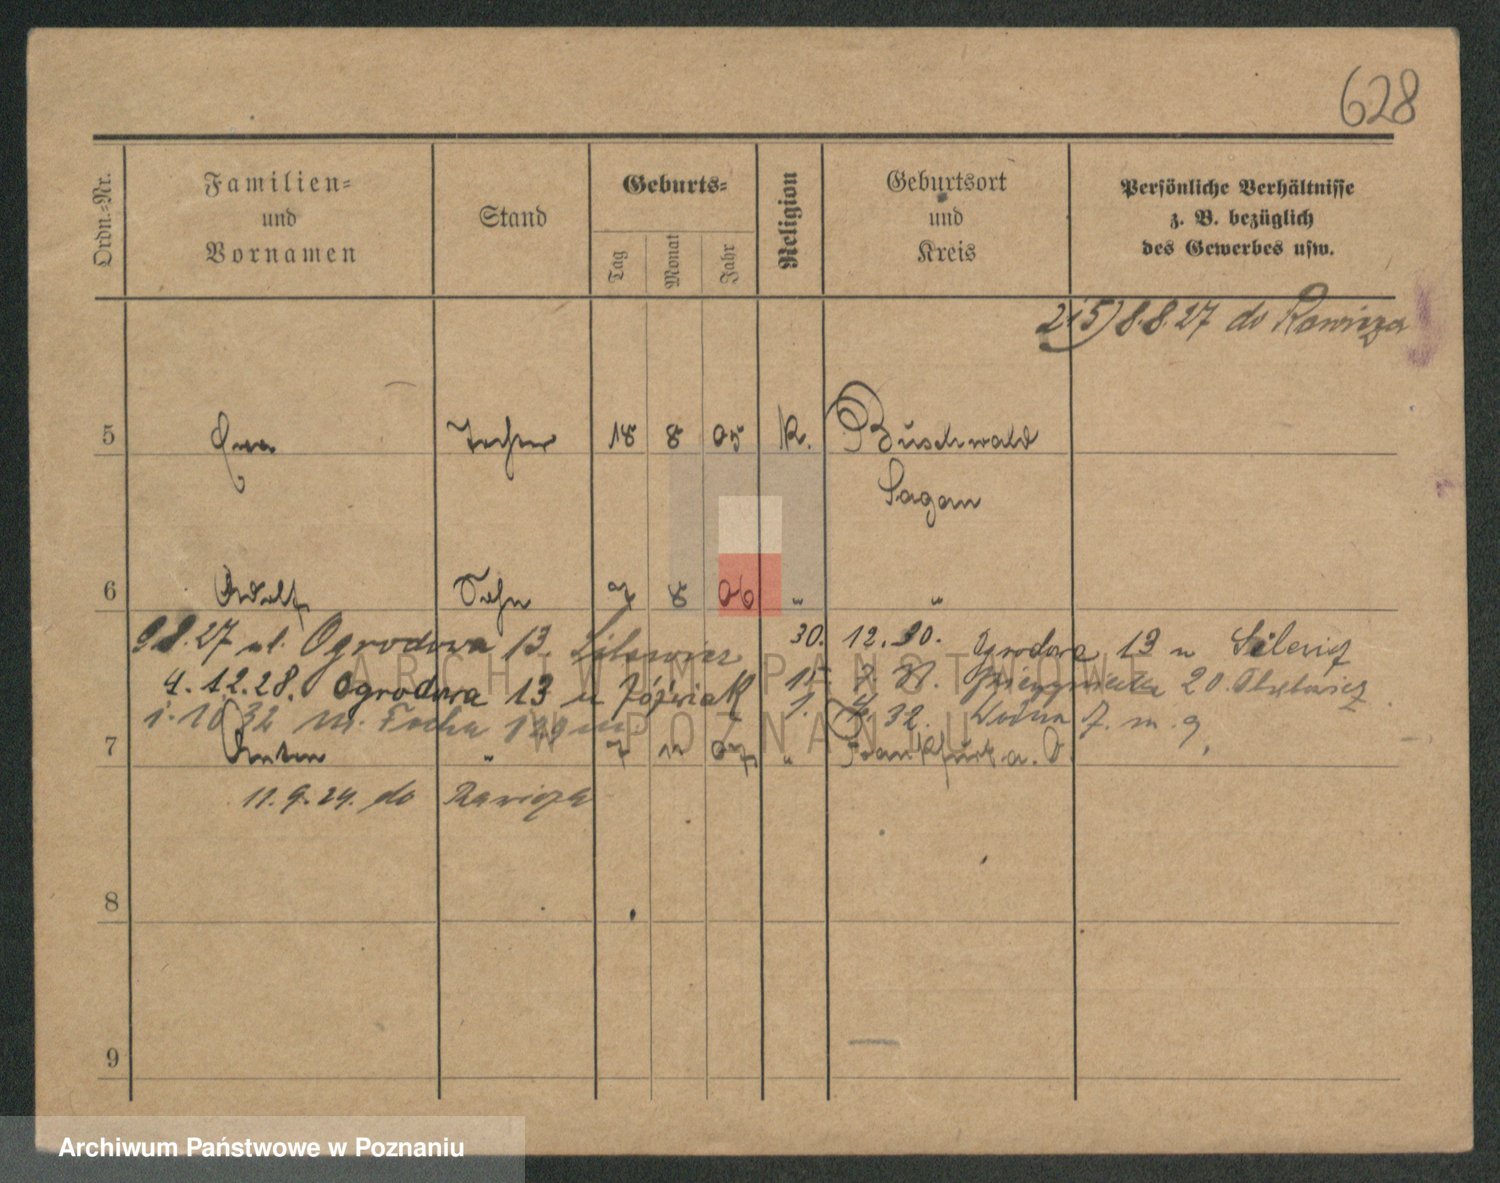 628
Ordn.-Nr.
Familien-
und
Vornamen
Stand
Geburts-
Tag
Monat
Jahr
Religion
Geburtsort
und
Kreis
Persönliche Verhältnisse
z. B. bezüglich
des Gewerbes usw.
2i5) 8.8.27 do Rawicza
5 Ewa Tochter 18 8 05 K. Buschwald
Sagan
6 Adolf Sohn 7 8 06 " "
9.8.27 ul. Ogrodowa 13.
30. 12. 30. Ogrodowa 13 u
4.12.28. Ogrodowa 13 u Jóźwiak
15. 7. 31. 20.
1.10 32 Focha
1. 4. 32. Woźna 7. m. 9
7 Anton " 7 11 07 " Frankfurt a. O.
11.9.24. do Rawicza
8
9
ARCHIWUM PAŃSTWOWE
W POZNANIU
Archiwum Państwowe w Poznaniu